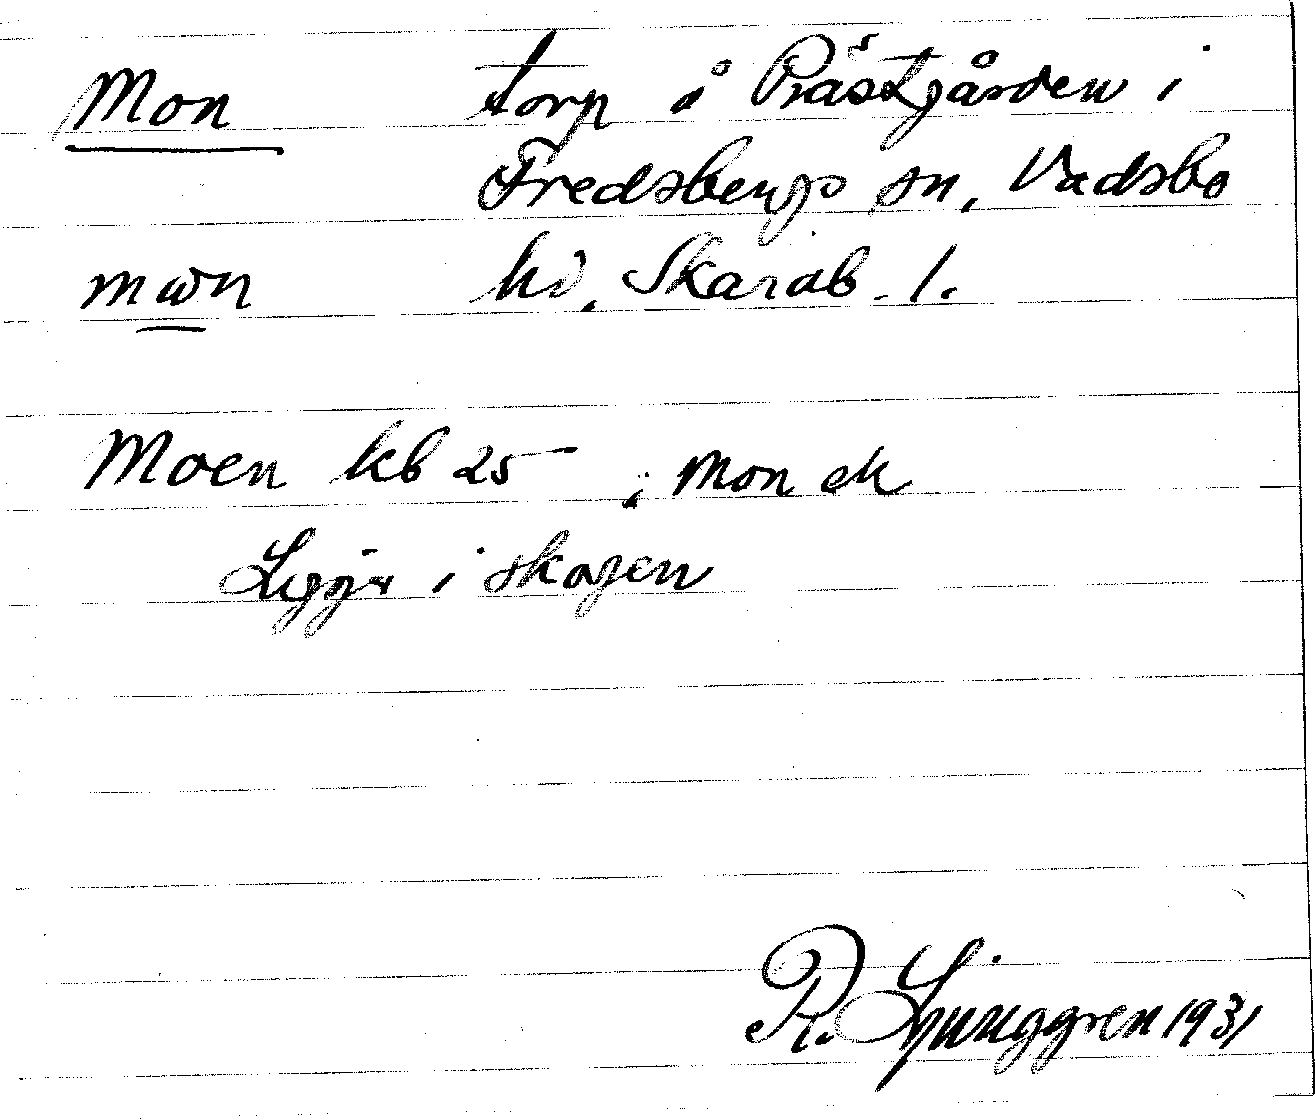 Mon torp å Prästgården i
Fredsbergs sn, Vadsbo
mωn hd, Skarab. l.
Moen kb 25 ; Mon ek
Ligger i skogen
R. Ljunggren 1931